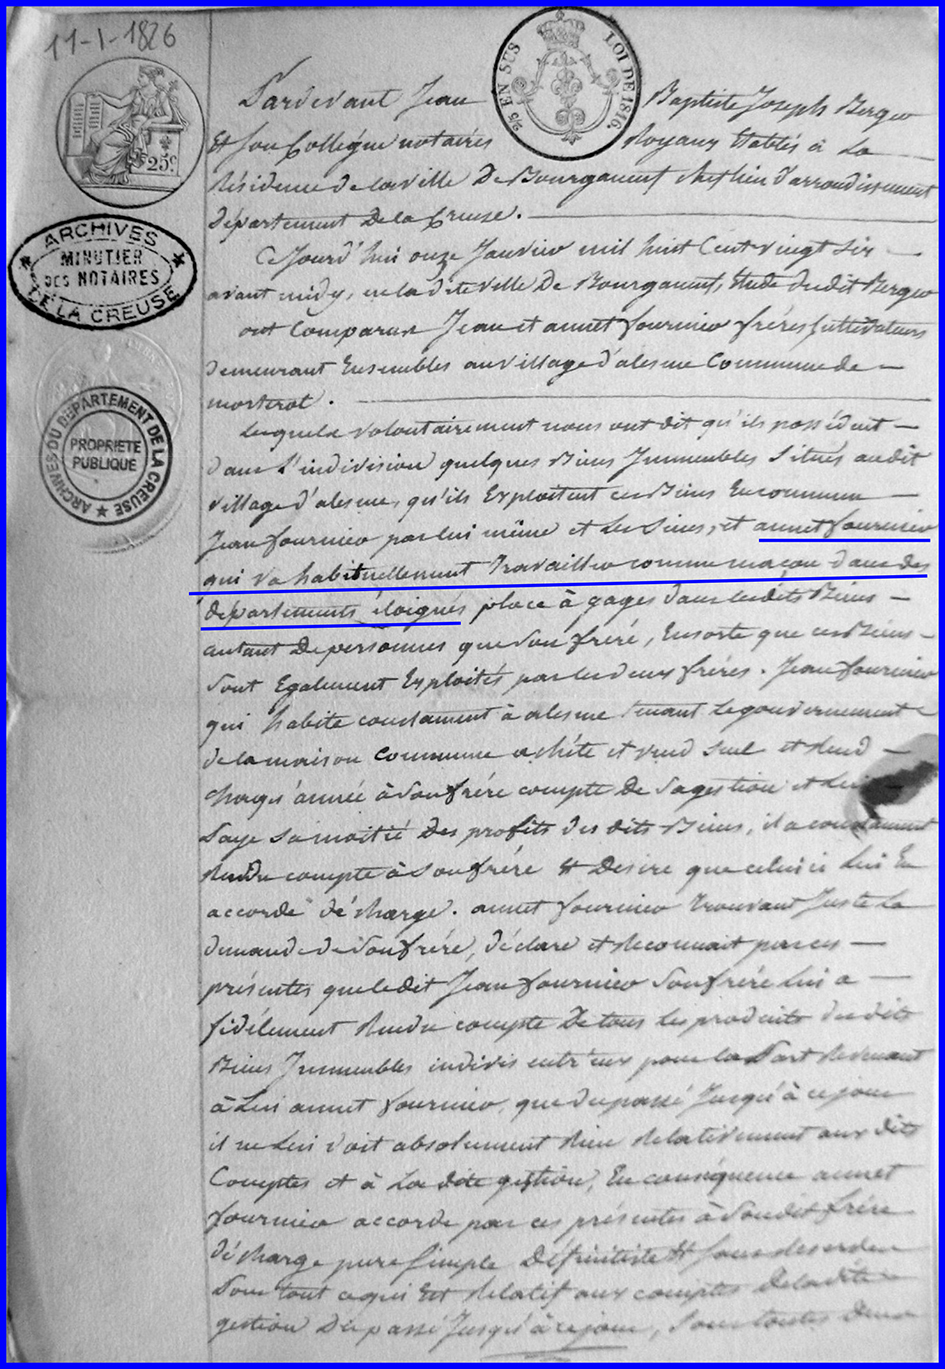 11-1-1826
2/5 EN SUS
LOI DE 1816.
25c.
ARCHIVES
MINUTIER
DES NOTAIRES
DE LA CREUSE
ARCHIVES DU DÉPARTEMENT DE LA CREUSE
PROPRIETE
PUBLIQUE
Pardevant Jean Baptiste Joseph
Et son Collégue notaires Royaux Etablis à La
Résidence de la ville De Bourganeuf chef lieu d'arrondissement
département De la Creuse.
Ce Jourd'hui onze Janvier mil huit Cent vingt six
avant midy, en la dite ville De Bourganeuf, Etude dudit
ont Comparus Jean et annet fournier fréres Cultivateurs
demeurant Ensembles au village d'alesme Commune de
morterol.
Lesquels volontairement nous ont dit qu'ils possédent
dans L'indivision quelques Biens Immeubles Situés audit
village d'alesme, qu'ils Exploitent ces Biens En commun
Jean fournier par lui même et Les Siens, et annet fournier
qui va habituellement Travailler comme maçon dans des
départements éloignés place à gages dans lesdits Biens
autant De personnes que Son frére, Ensorte que ces Biens
Sont Egalement Exploités par les deux fréres. Jean fournier
qui habite constament à alesme tenant Le gouvernement
de la maison Commune achéte et vend seul et Rend
chaque année à Son frére compte De Sa gestion et Lui
Paye Sa moitié Des profits des dits Biens, il a constament
Rendu compte à Son frére Et Desire que celui ci Lui En
accorde décharge. annet fournier trouvant Juste La
demande de Son frére, déclare et Reconnait par ces
présentes que le dit Jean fournier Son frére Lui a
fidélement Rendu compte De tous Les produits des dits
Biens Immeubles indivis entr'eux pour la Part Revenant
à Lui annet fournier, que du passé Jusqu'à ce jour
il ne Lui doit absolument Rien Relativement aux dits
Comptes et à La dite gestion, En conséquence annet
fournier accorde par ces présentes à Son dit frére
décharge pure Simple Définitive Et Sans
Pour tout ce qui Est Relatif aux comptes De la dite
gestion Du passé Jusqu'à ce jour, Sous toutes